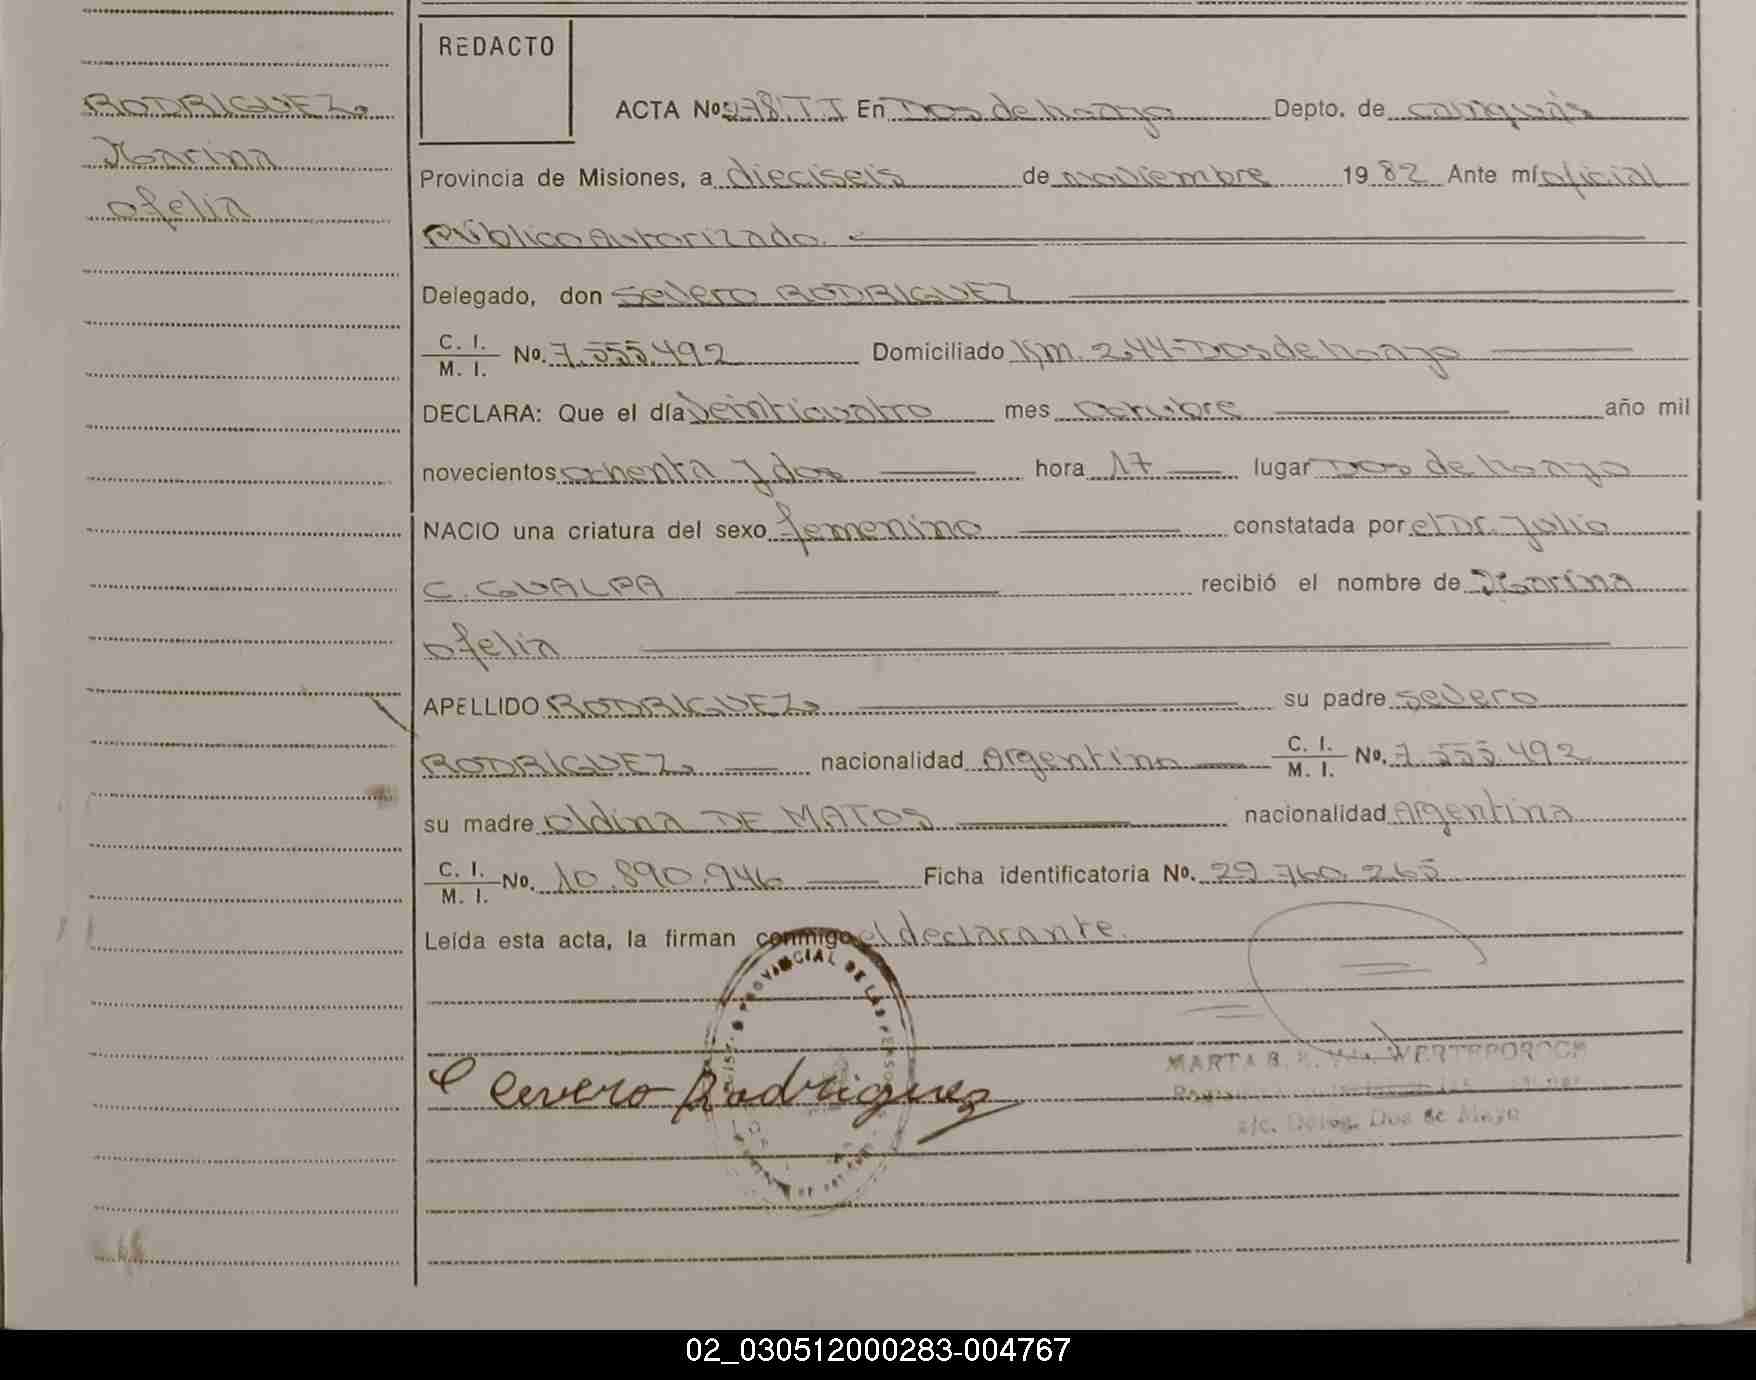 RODRIGUEZ.
Marina
Ofelia
REDACTO
ACTA No. 278 TI En Dos de mayo Depto. de Cainguás
Provincia de Misiones, a dieciseis de noviembre 1982 Ante mí oficial
Público Autorizado.
Delegado, don Severo RODRIGUEZ
C. I.
M. I. No. 7.555.492 Domiciliado Km. 244-Dos de mayo
DECLARA: Que el día veinticuatro mes octubre año mil
novecientos ochenta y dos hora 17 lugar Dos de mayo
NACIO una criatura del sexo femenino constatada por el Dr. Julio
C. GUALPA recibió el nombre de Marina
Ofelia
APELLIDO RODRIGUEZ. su padre Severo
RODRIGUEZ. nacionalidad Argentina C. I.
M. I. No. 7.555.492
su madre Oldina DE MATOS nacionalidad Argentina
C. I.
M. I. No. 10.890.946 Ficha identificatoria No. 29.760.265
Leída esta acta, la firman conmigo el declarante.
PROVINCIAL DE LAS PERSONAS
Cevero Rodriguez
MARTA B.
Deleg. Dos de Mayo
02_030512000283-004767